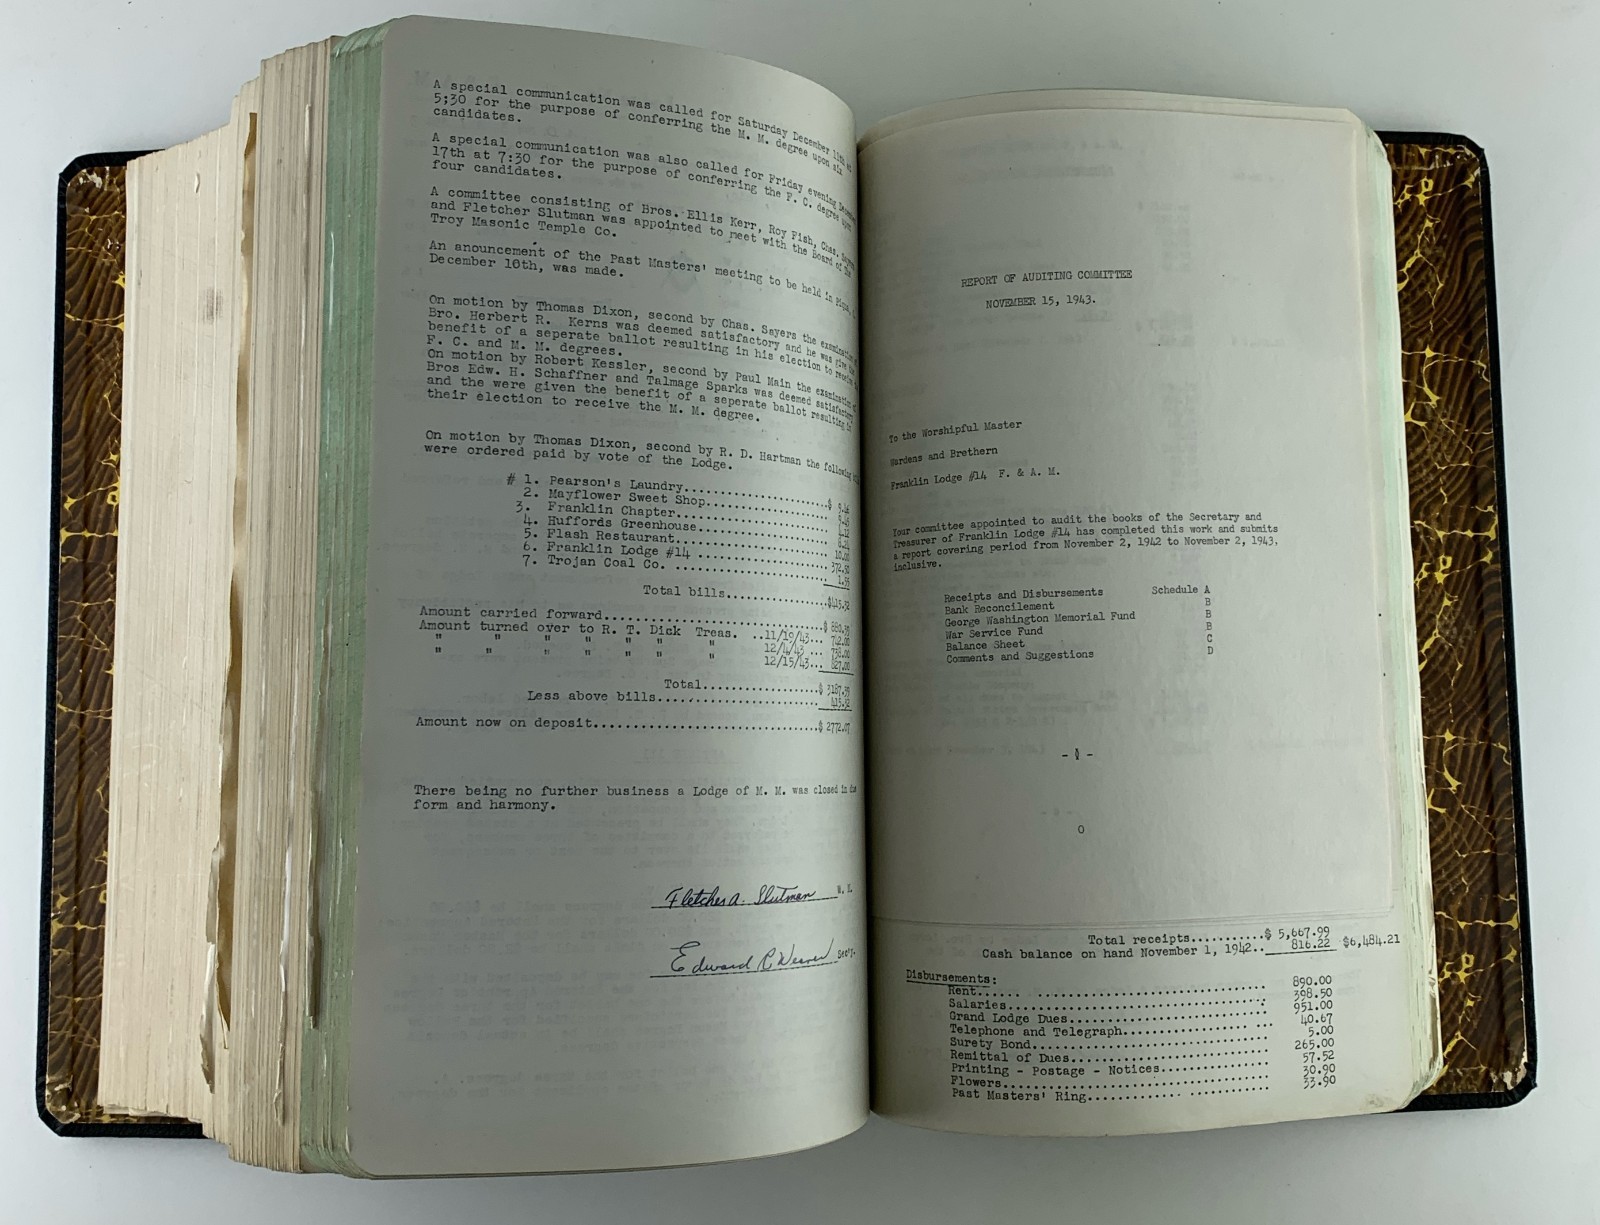 A special communication was called for Saturday December 11th at
5;30 for the purpose of conferring the M. M. degree upon six
candidates.
A special communication was also called for Friday evening December
17th at 7:30 for the purpose of conferring the F. C. degree upon
four candidates.
A committee consisting of Bros. Ellis Kerr, Roy Fish, Chas. Sayers
and Fletcher Slutman was appointed to meet with the Board of the
Troy Masonic Temple Co.
An anouncement of the Past Masters' meeting to be held in Piqua,
December 10th, was made.
On motion by Thomas Dixon, second by Chas. Sayers the examination of
Bro. Herbert R. Kerns was deemed satisfactory and he was give the
benefit of a seperate ballot resulting in his election to receive
F. C. and M. M. degrees.
On motion by Robert Kessler, second by Paul Main the examination of
Bros Edw. H. Schaffner and Talmage Sparks was deemed satisfactory
and the were given the benefit of a seperate ballot resulting in
their election to receive the M. M. degree.
On motion by Thomas Dixon, second by R. D. Hartman the following
were ordered paid by vote of the Lodge.
# 1. Pearson's Laundry....................$
2. Mayflower Sweet Shop..................
3. Franklin Chapter....................
4. Huffords Greenhouse...................
5. Flash Restaurant..................... 10.00
6. Franklin Lodge #14 .................. 372.50
7. Trojan Coal Co. ..................... 1.55
Total bills..............$415.32
Amount carried forward............................$ 880.39
Amount turned over to R. T. Dick Treas. ..11/19/43... 742.00
" " " " " " " 12/4/43... 738.00
" " " " " " " 12/15/43... 827.00
Total.................$ 3187.39
Less above bills....................... 415.32
Amount now on deposit.............................$ 2772.07
There being no further business a Lodge of M. M. was closed in due
form and harmony.
Fletcher A. Slutman W. M.
Edward R Weaver Secy.
REPORT OF AUDITING COMMITTEE
NOVEMBER 15, 1943.
To the Worshipful Master
Wardens and Brethern
Franklin Lodge #14 F. & A. M.
Your committee appointed to audit the books of the Secretary and
Treasurer of Franklin Lodge #14 has completed this work and submits
a report covering period from November 2, 1942 to November 2, 1943,
inclusive.
Receipts and Disbursements Schedule A
Bank Reconcilement B
George Washington Memorial Fund B
War Service Fund B
Balance Sheet C
Comments and Suggestions D
- 0 -
0
Total receipts...........$ 5,667.99
Cash balance on hand November 1, 1942.. 816.22 $6,484.21
Disbursements:
Rent...... ............................ 890.00
Salaries............................... 398.50
Grand Lodge Dues....................... 951.00
Telephone and Telegraph................ 40.67
Surety Bond............................ 5.00
Remittal of Dues....................... 265.00
Printing - Postage - Notices............. 57.52
Flowers................................ 30.90
Past Masters' Ring..................... 33.90